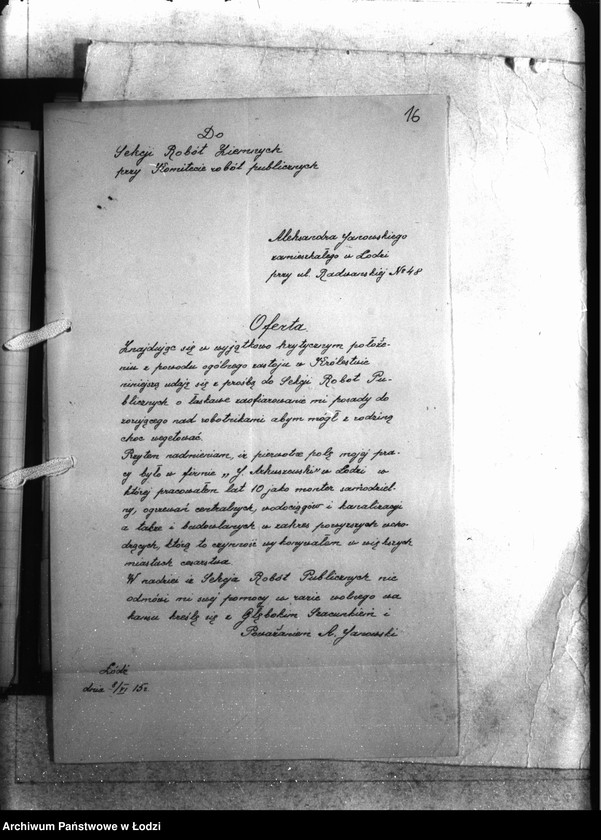 16
Do
Sekcji Robót Ziemnych
przy Komitecie robót publicznych
Aleksandra Janowskiego
zamieszkałego w Łodzi
przy ul. Radwańskiej № 48
Oferta.
Znajdując się w wyjątkowo krytycznym położe-
niu z powodu ogólnego zastoju w Królestwie
niniejszą udaję się z prośbą do Sekcji Robót Pu-
blicznych o łaskawe zaofiarowanie mi posady do
zorującego nad robotnikami abym mógł z rodziną
choć wegetować.
Przytem nadmieniam, iż pierwotne polę mojej pra-
cy było w firmie „J. Arkuszewski" w Łodzi w
której pracowałem lat 10 jako monter samodziel-
ny, ogrzewań centralnych, wodociągów i kanalizacji
a także i budowlanych w zakres powyższych wcho-
dzących, którą to czynność wykonywałem w większych
miastach cesarstwa.
W nadziei iż Sekcja Robót Publicznych nie
odmówi mi swej pomocy w razie wolnego wa
kansu kreślę się z Głębokim Szacunkiem i
Poważaniem A. Janowski
Łódź
dnia /VI 15r.
Archiwum Państwowe w Łodzi